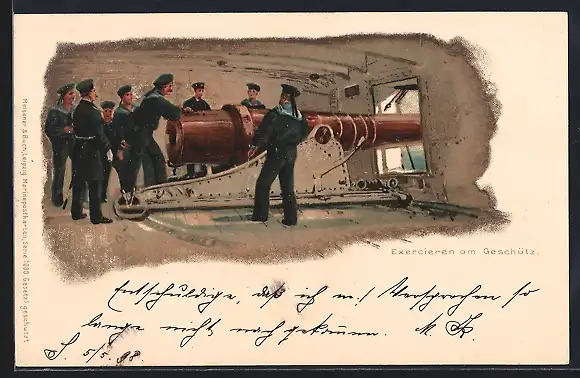 Meissner & Buch, Leipzig Marinepostkarten, Serie 1000 Gesetzl. geschützt.
Exercieren am Geschütz.
Entschuldige, daß ich m. Versprechen so
lange nicht nachgekommen. M.
S. 5/5. 98.